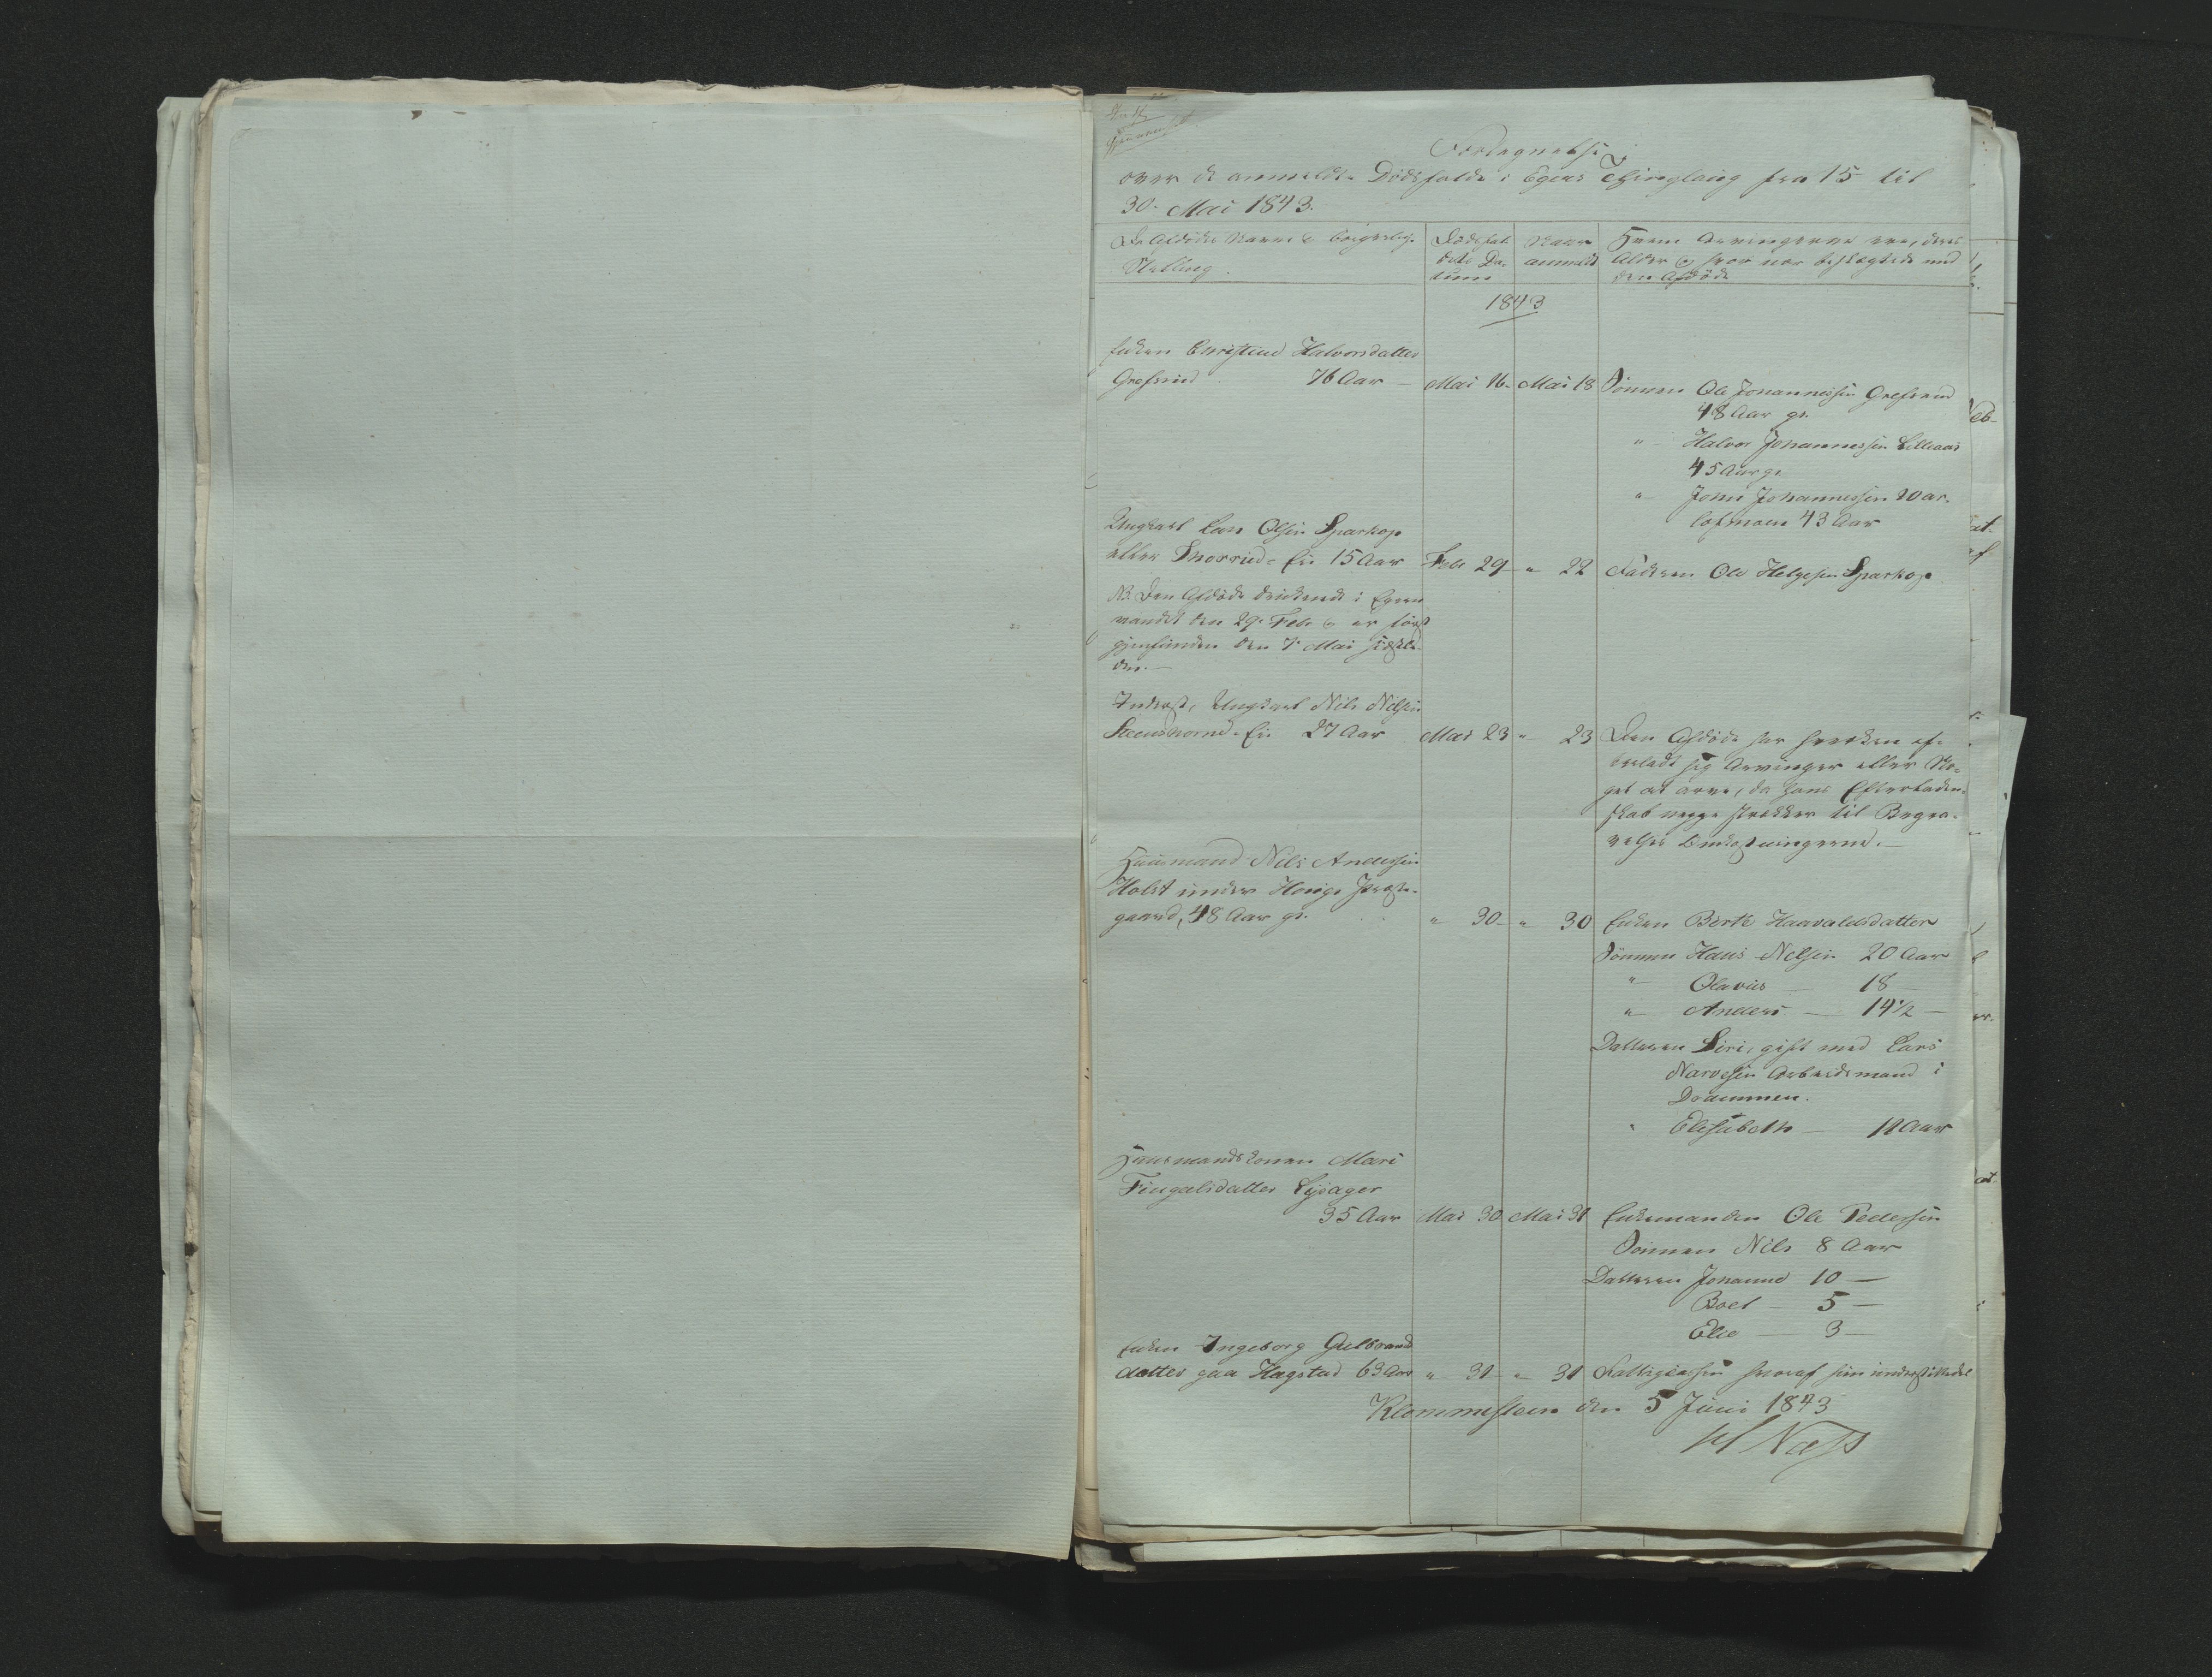 Fortegnelse
over de anmeldte Dödsfalde i Egers Thinglaug fra 15 til
30. Mai 1843.
De Afdödes Navne & borgerlige
Stilling.
Dödsfal-
dets Da-
tum
Naar
anmeldt
Hvem Arvingerne ere, deres
Alder og hvor nær beslægtede med
den Afdöde
1843
Enken Christine Halvorsdatter
Grefsrud 76 Aar — Mai 16. Mai 18 Sönnen Ole Johannessen Grefsrud
48 Aar gl.
" Halvor Johannessen Lilleaas
45 Aar gl.
" Johannessen
43 Aar
Ungkarl Olsen Sparkop
eller 15 Aar Feb 29 " 22 Faderen Ole Helgesen Sparkop
NB. Den Afdöde druknede i
vandet den 29. Feb. og er först
gjenfunden den 7. Mai sidstle-
den. —
Inderst, Ungkarl Nils Nilsen
27 Aar Mai 23 " 23 Den Afdöde har hverken ef-
terladt sig Arvinger eller No-
get at arve, da hans Efterladen-
skab neppe strækker til Begra-
velses Omkostningerne. —
Huusmand Nils Andersen
Holst under Houge Præste-
gaard, 48 Aar gl. " 30 " 30 Enken Berte Haavaldsdatter
Sönnen Hans Nilsen 20 Aar
" Olavus — 18 —
" Anders — 14½ —
Datteren Siri, gift med Lars
Narvesen Arbeidsmand i
Drammen.
" Elisabeth — 12 Aar
Huusmandskonen Mari
Fingalsdatter Lysager
35 Aar Mai 30 Mai 31 Enkemanden Ole Pedersen
Sönnen Nils 8 Aar
Datteren Johanne 10 —
Boel — 5 —
Elie — 3 —
Enken Ingeborg Gulbrands
datter paa Hagstad 63 Aar " 31 " 31 Fattigkassen hvoraf hun understöttedes
Klommesteen den 5 Juni 1843
H Næss